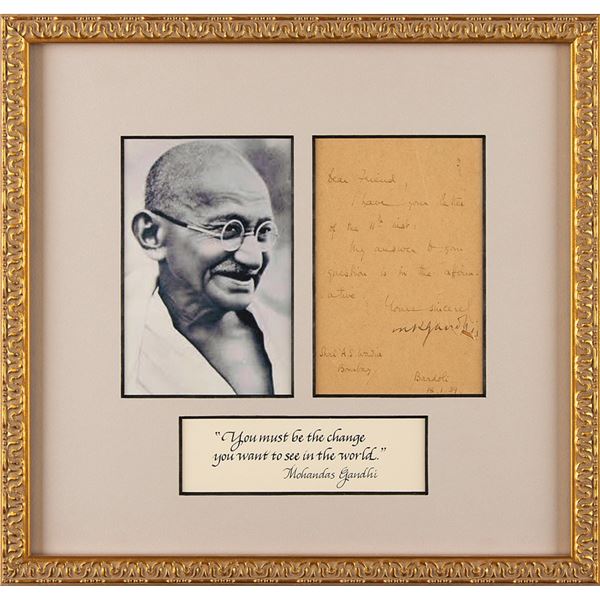 Dear Friend,
I have your letter
of the 11th inst.
My answer to your
question is in the affirm-
ative
Yours sincerely
MKGandhi
Bombay
Bardoli
“You must be the change
you want to see in the world.”
Mohandas Gandhi